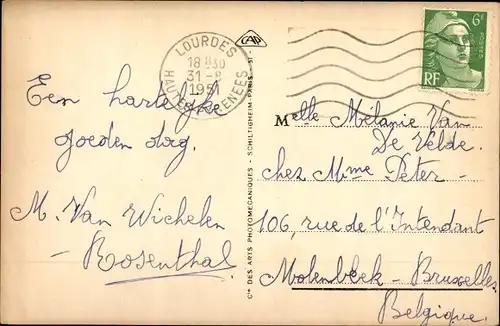 Een hartelijke
goeden dag.
M. Van Wichelen
- Rosenthal.
LOURDES
18H30
31-8
1951
HAUTES PYRENEES
CAP
6F
RF
Cie DES ARTS PHOTOMECANIQUES - SCHILTIGHEIM-PARIS - 51
Melle Mélanie Van
De Velde.
chez Mme Peter -
106, rue de l'Intendant
Molenbeek - Bruxelles
Belgique.